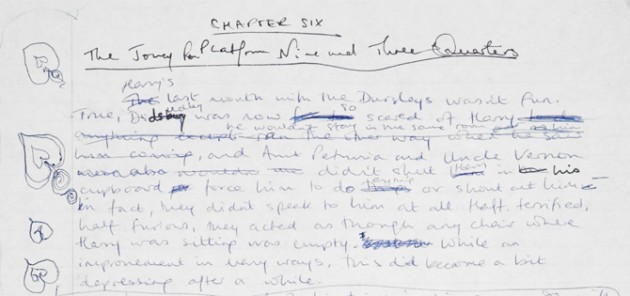 CHAPTER SIX
The Jorney from Platform Nine and Three Quarters
Harry's
The last month with the Dursleys wasn't fun.
True, Dudley was now so scared of Harry
he wouldn't stay in the same room
anything except ran the other way when he saw
him coming, and Aunt Petunia and Uncle Vernon
didn't shut Harry in his
cupboard force him to do or shout at him –
in fact, they didn't speak to him at all. Half-terrified,
half furious, they acted as though any chair where
Harry was sitting was empty. While an
improvement in many ways, this did become a bit
depressing after a while.